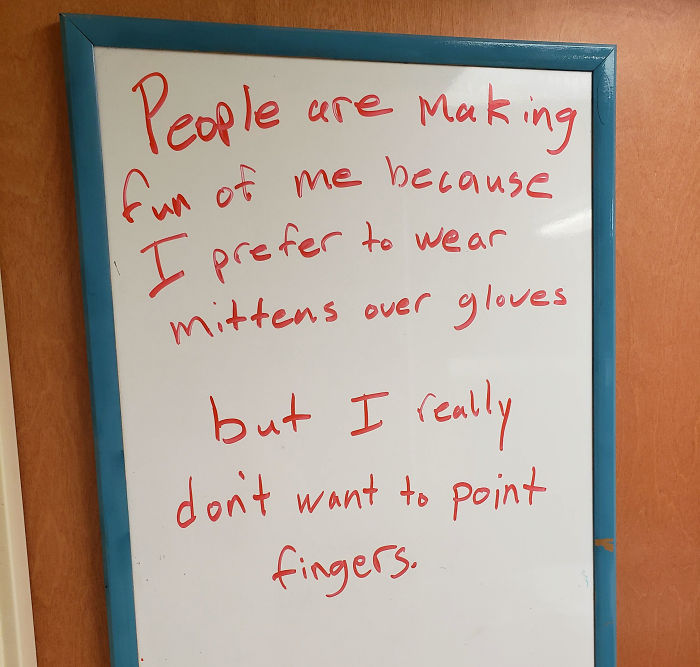 People are Making
fun of me because
I prefer to wear
mittens over gloves
but I really
don't want to point
fingers.